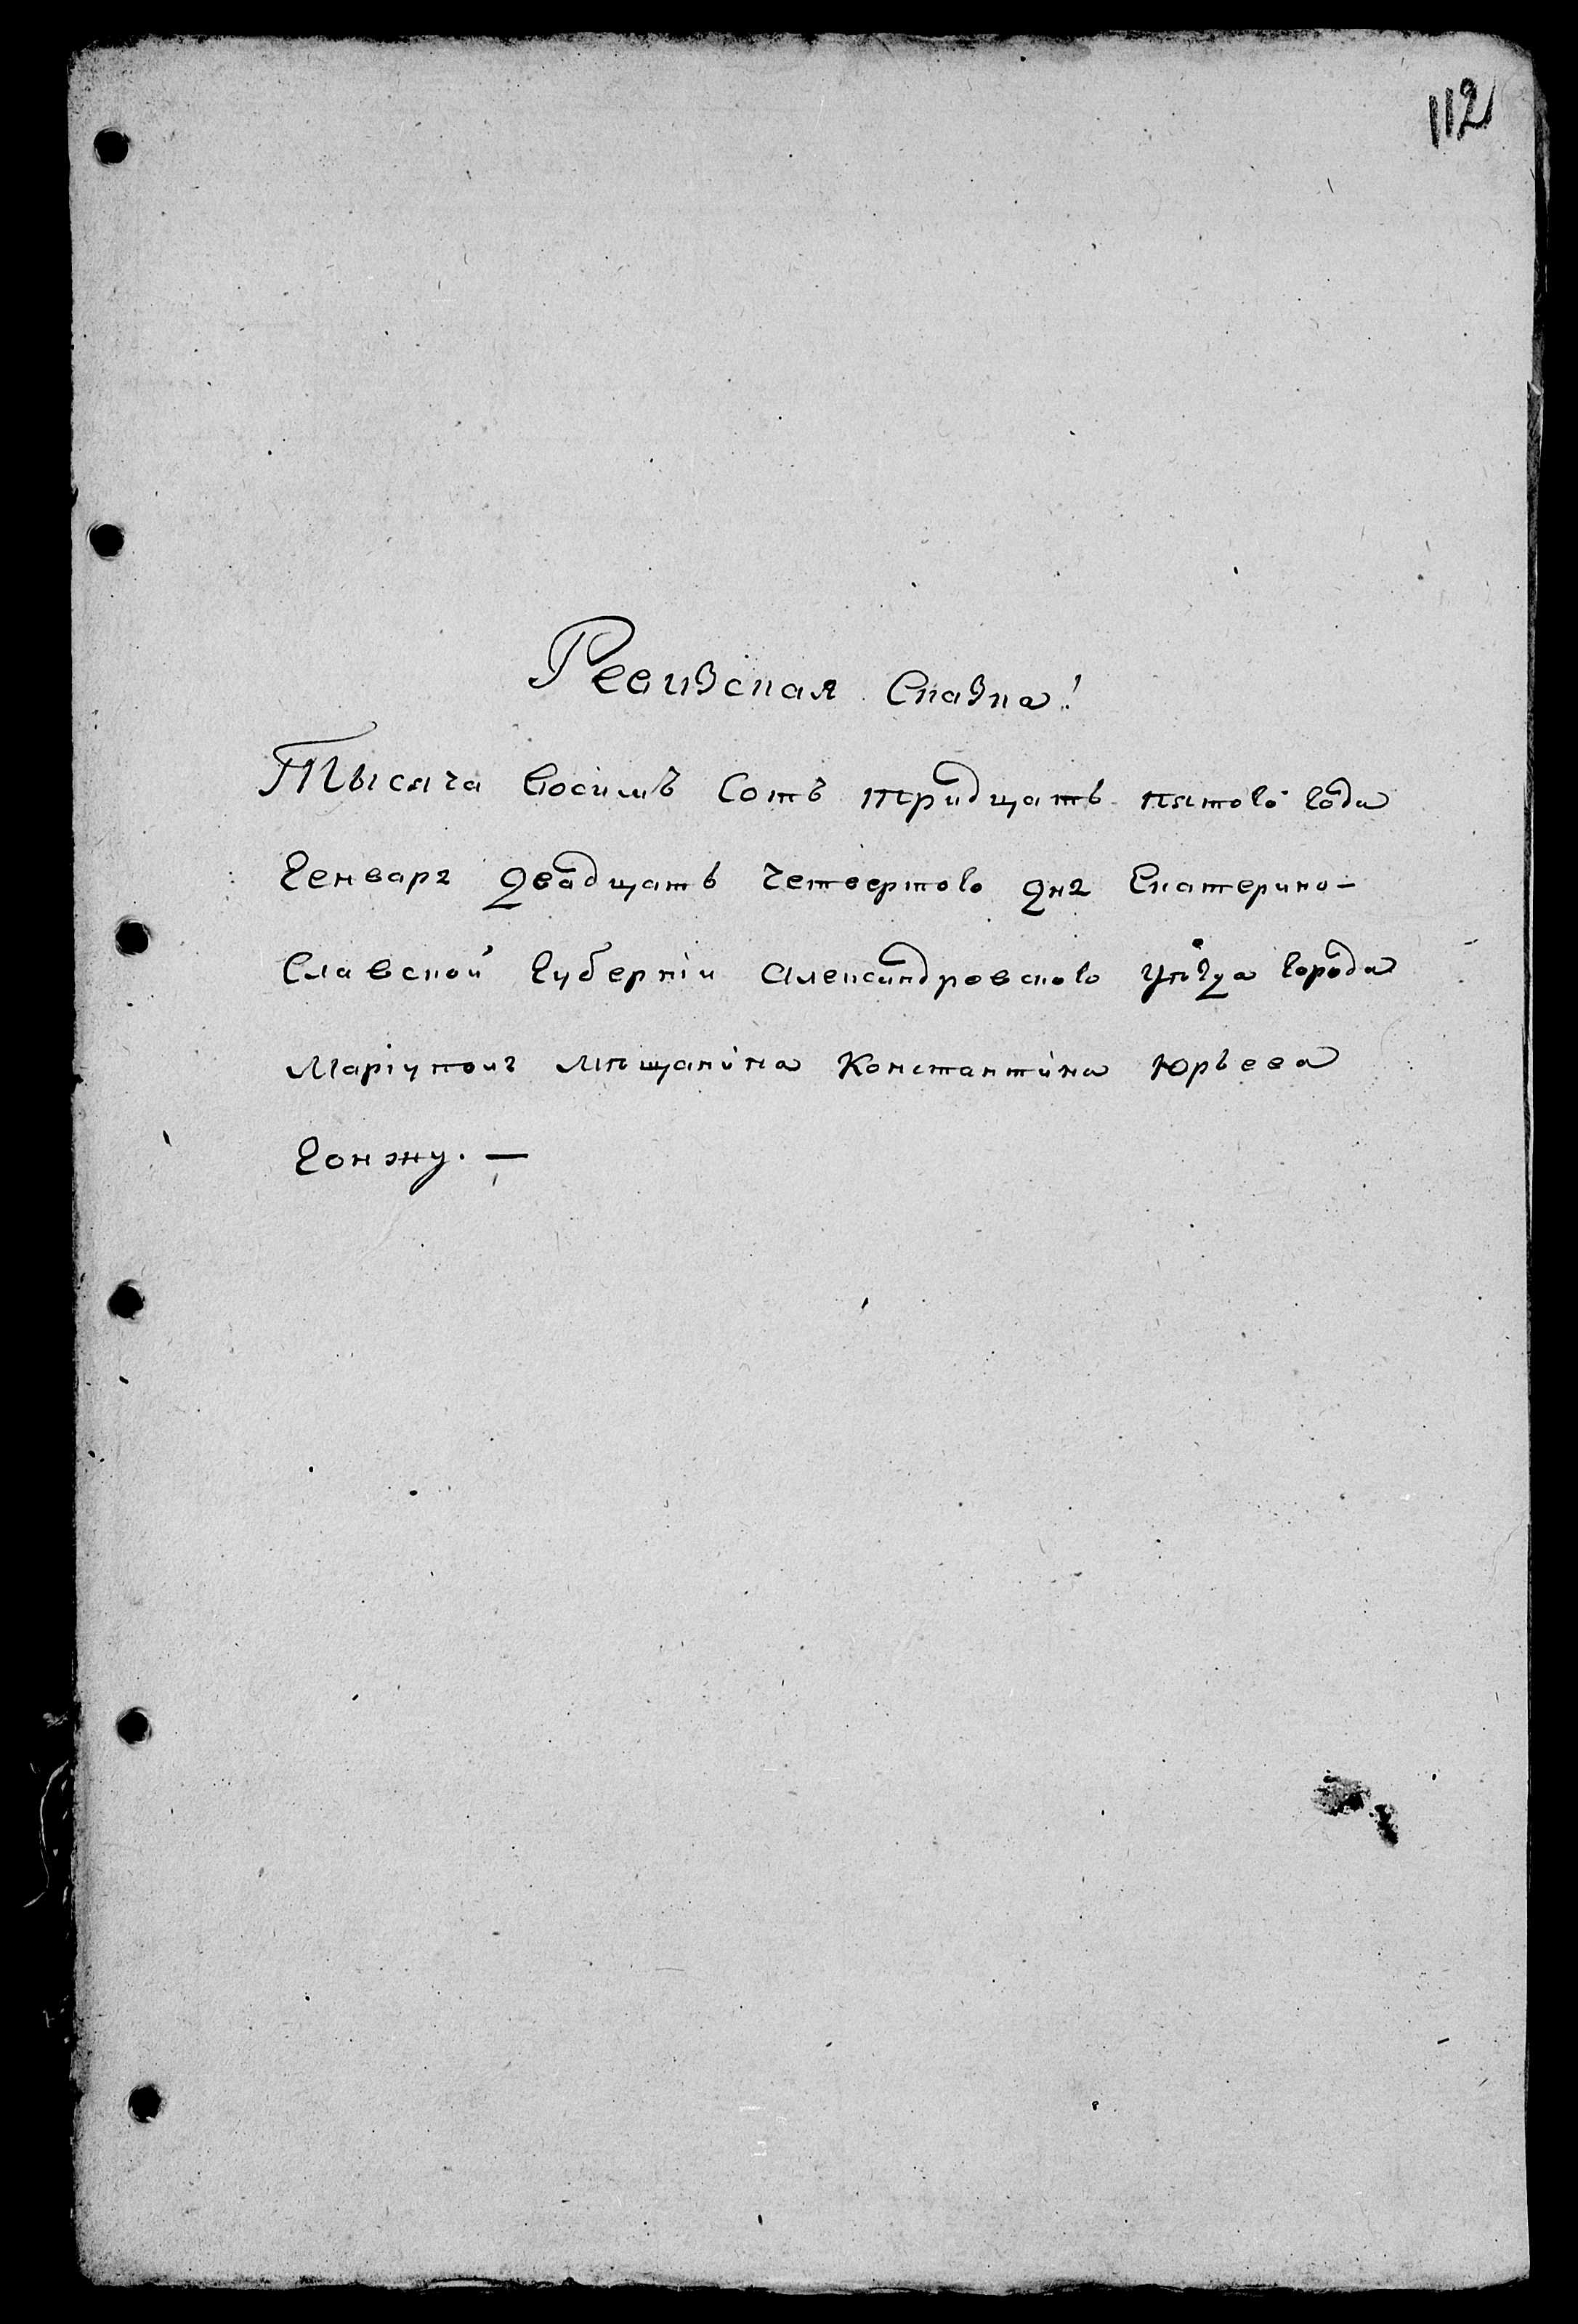 112
Ревизская Сказка!
Тысяча восимъ Сотъ тридцать пятого года
Генваря двадцать четвертого дня Екатерино-
Славской Губерніи Александровского уѣзда города
Маріуполя мѣщанина Константина Юрьева
Гонжу. —